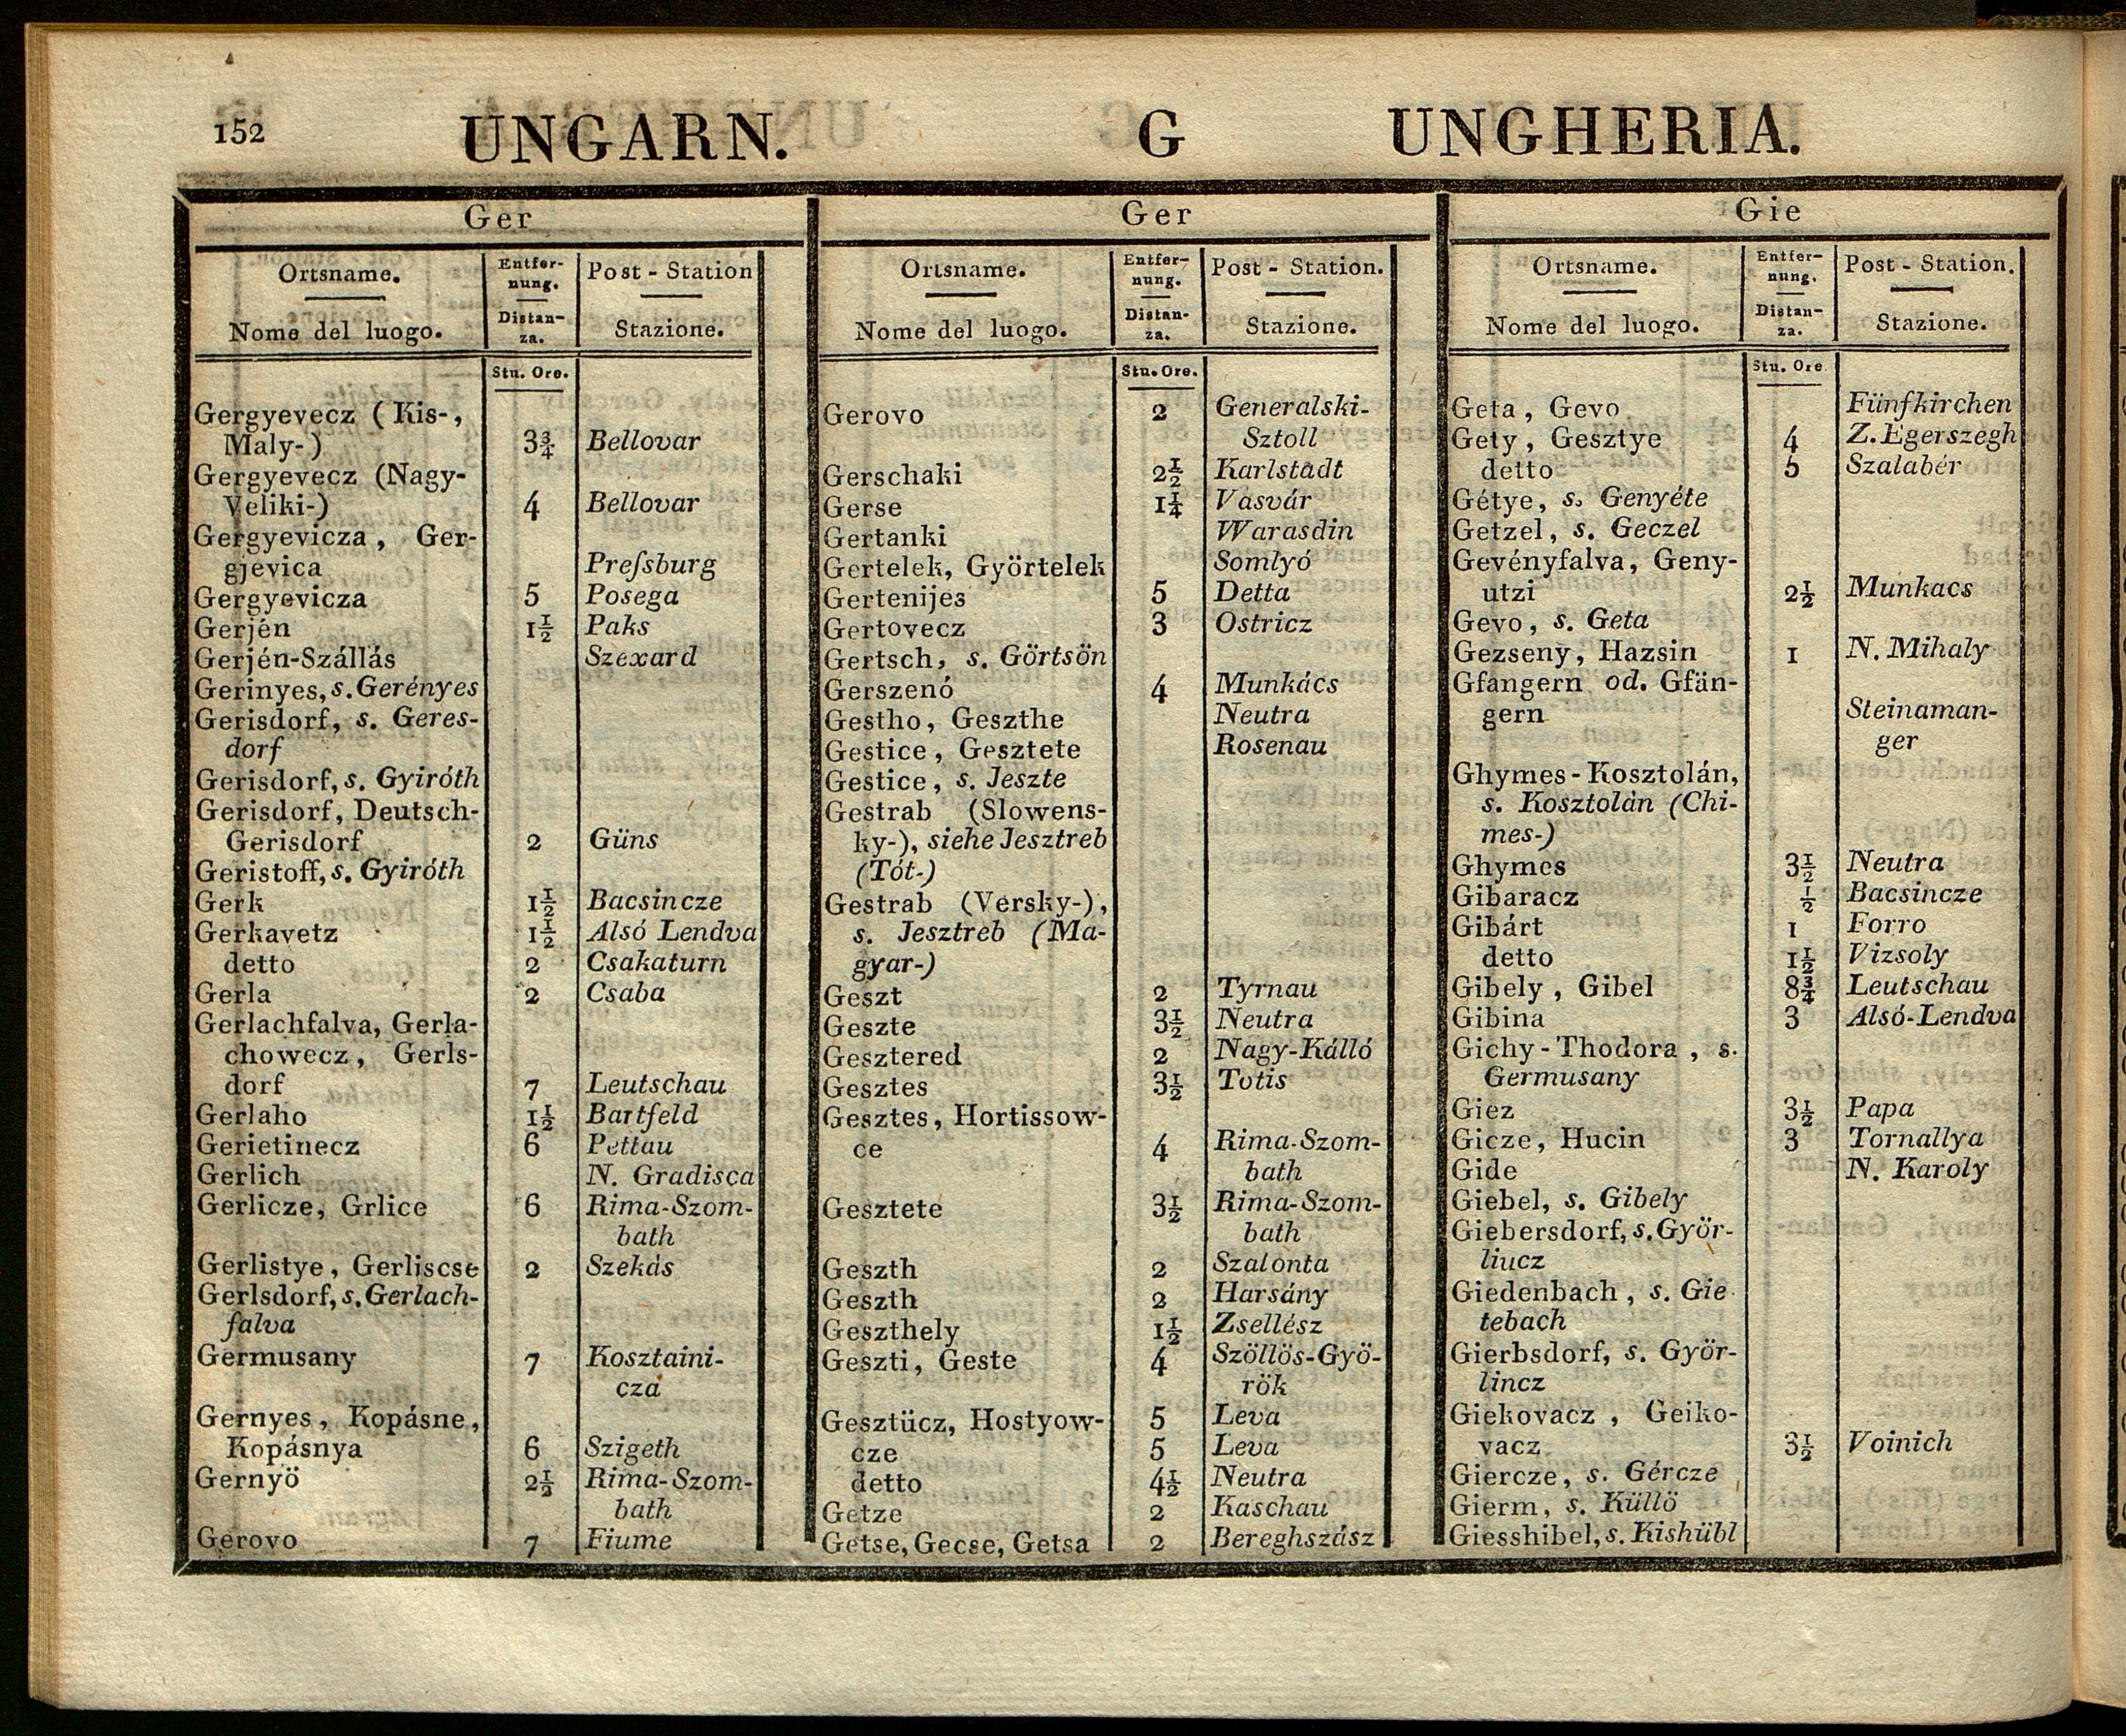 152 UNGARN. G UNGHERIA.
Ger
Ortsname. Entfer- Post - Station
nung.
Distan-
Nome del luogo. za. Stazione.
Stu. Ore.
Gergyevecz (Kis-,
Maly-) 3¾ Bellovar
Gergyevecz (Nagy-
Veliki-) 4 Bellovar
Gergyevicza, Ger-
gjevica Preſsburg
Gergyevicza 5 Posega
Gerjén 1½ Paks
Gerjén-Szállás Szexard
Gerinyes, s. Gerényes
Gerisdorf, s. Geres-
dorf
Gerisdorf, s. Gyiróth
Gerisdorf, Deutsch-
Gerisdorf 2 Güns
Geristoff, s. Gyiróth
Gerk 1½ Bacsincze
Gerkavetz 1½ Alsó Lendva
detto 2 Csakaturn
Gerla 2 Csaba
Gerlachfalva, Gerla-
chowecz, Gerls-
dorf 7 Leutschau
Gerlaho 1½ Bartfeld
Gerietinecz 6 Pettau
Gerlich N. Gradisca
Gerlicze, Grlice 6 Rima-Szom-
bath
Gerlistye, Gerliscse 2 Szekás
Gerlsdorf, s. Gerlach-
falva
Germusany 7 Kosztaini-
cza
Gernyes, Kopásne,
Kopásnya 6 Szigeth
Gernyö 2½ Rima-Szom-
bath
Gerovo 7 Fiume
Ger
Ortsname. Entfer- Post - Station.
nung.
Distan-
Nome del luogo. za. Stazione.
Stu. Ore.
Gerovo 2 Generalski-
Sztoll
Gerschaki 2½ Karlstadt
Gerse 1¼ Vasvár
Gertanki Warasdin
Gertelek, Györtelek Somlyó
Gertenijes 5 Detta
Gertovecz 3 Ostricz
Gertsch, s. Görtsön
Gerszenó 4 Munkács
Gestho, Geszthe Neutra
Gestice, Gesztete Rosenau
Gestice, s. Jeszte
Gestrab (Slowens-
ky-), siehe Jesztreb
(Tót-)
Gestrab (Versky-),
s. Jesztreb (Ma-
gyar-)
Geszt 2 Tyrnau
Geszte 3½ Neutra
Gesztered 2 Nagy-Kálló
Gesztes 3½ Totis
Gesztes, Hortissow-
ce 4 Rima-Szom-
bath
Gesztete 3½ Rima-Szom-
bath
Geszth 2 Szalonta
Geszth 2 Harsány
Geszthely 1½ Zsellész
Geszti, Geste 4 Szöllös-Gyö-
rök
Gesztücz, Hostyow- 5 Leva
cze 5 Leva
detto 4½ Neutra
Getze 2 Kaschau
Getse, Gecse, Getsa 2 Bereghszász
Gie
Ortsname. Entfer- Post - Station.
nung.
Distan-
Nome del luogo. za. Stazione.
Stu. Ore
Geta, Gevo Fünfkirchen
Gety, Gesztye 4 Z. Egerszegh
detto 5 Szalabér
Gétye, s. Genyéte
Getzel, s. Geczel
Gevényfalva, Geny-
utzi 2½ Munkacs
Gevo, s. Geta
Gezseny, Hazsin 1 N. Mihaly
Gfangern od. Gfän-
gern Steinaman-
ger
Ghymes-Kosztolán,
s. Kosztolán (Chi-
mes-)
Ghymes 3½ Neutra
Gibaracz ½ Bacsincze
Gibárt 1 Forro
detto 1½ Vizsoly
Gibely, Gibel 8¾ Leutschau
Gibina 3 Alsó-Lendva
Gichy-Thodora, s.
Germusany
Giez 3½ Papa
Gicze, Hucin 3 Tornallya
Gide N. Karoly
Giebel, s. Gibely
Giebersdorf, s. Györ-
liucz
Giedenbach, s. Gie
tebach
Gierbsdorf, s. Györ-
lincz
Giekovacz, Geiko-
vacz 3½ Voinich
Giercze, s. Gércze
Gierm, s. Küllö
Giesshibel, s. Kishübl